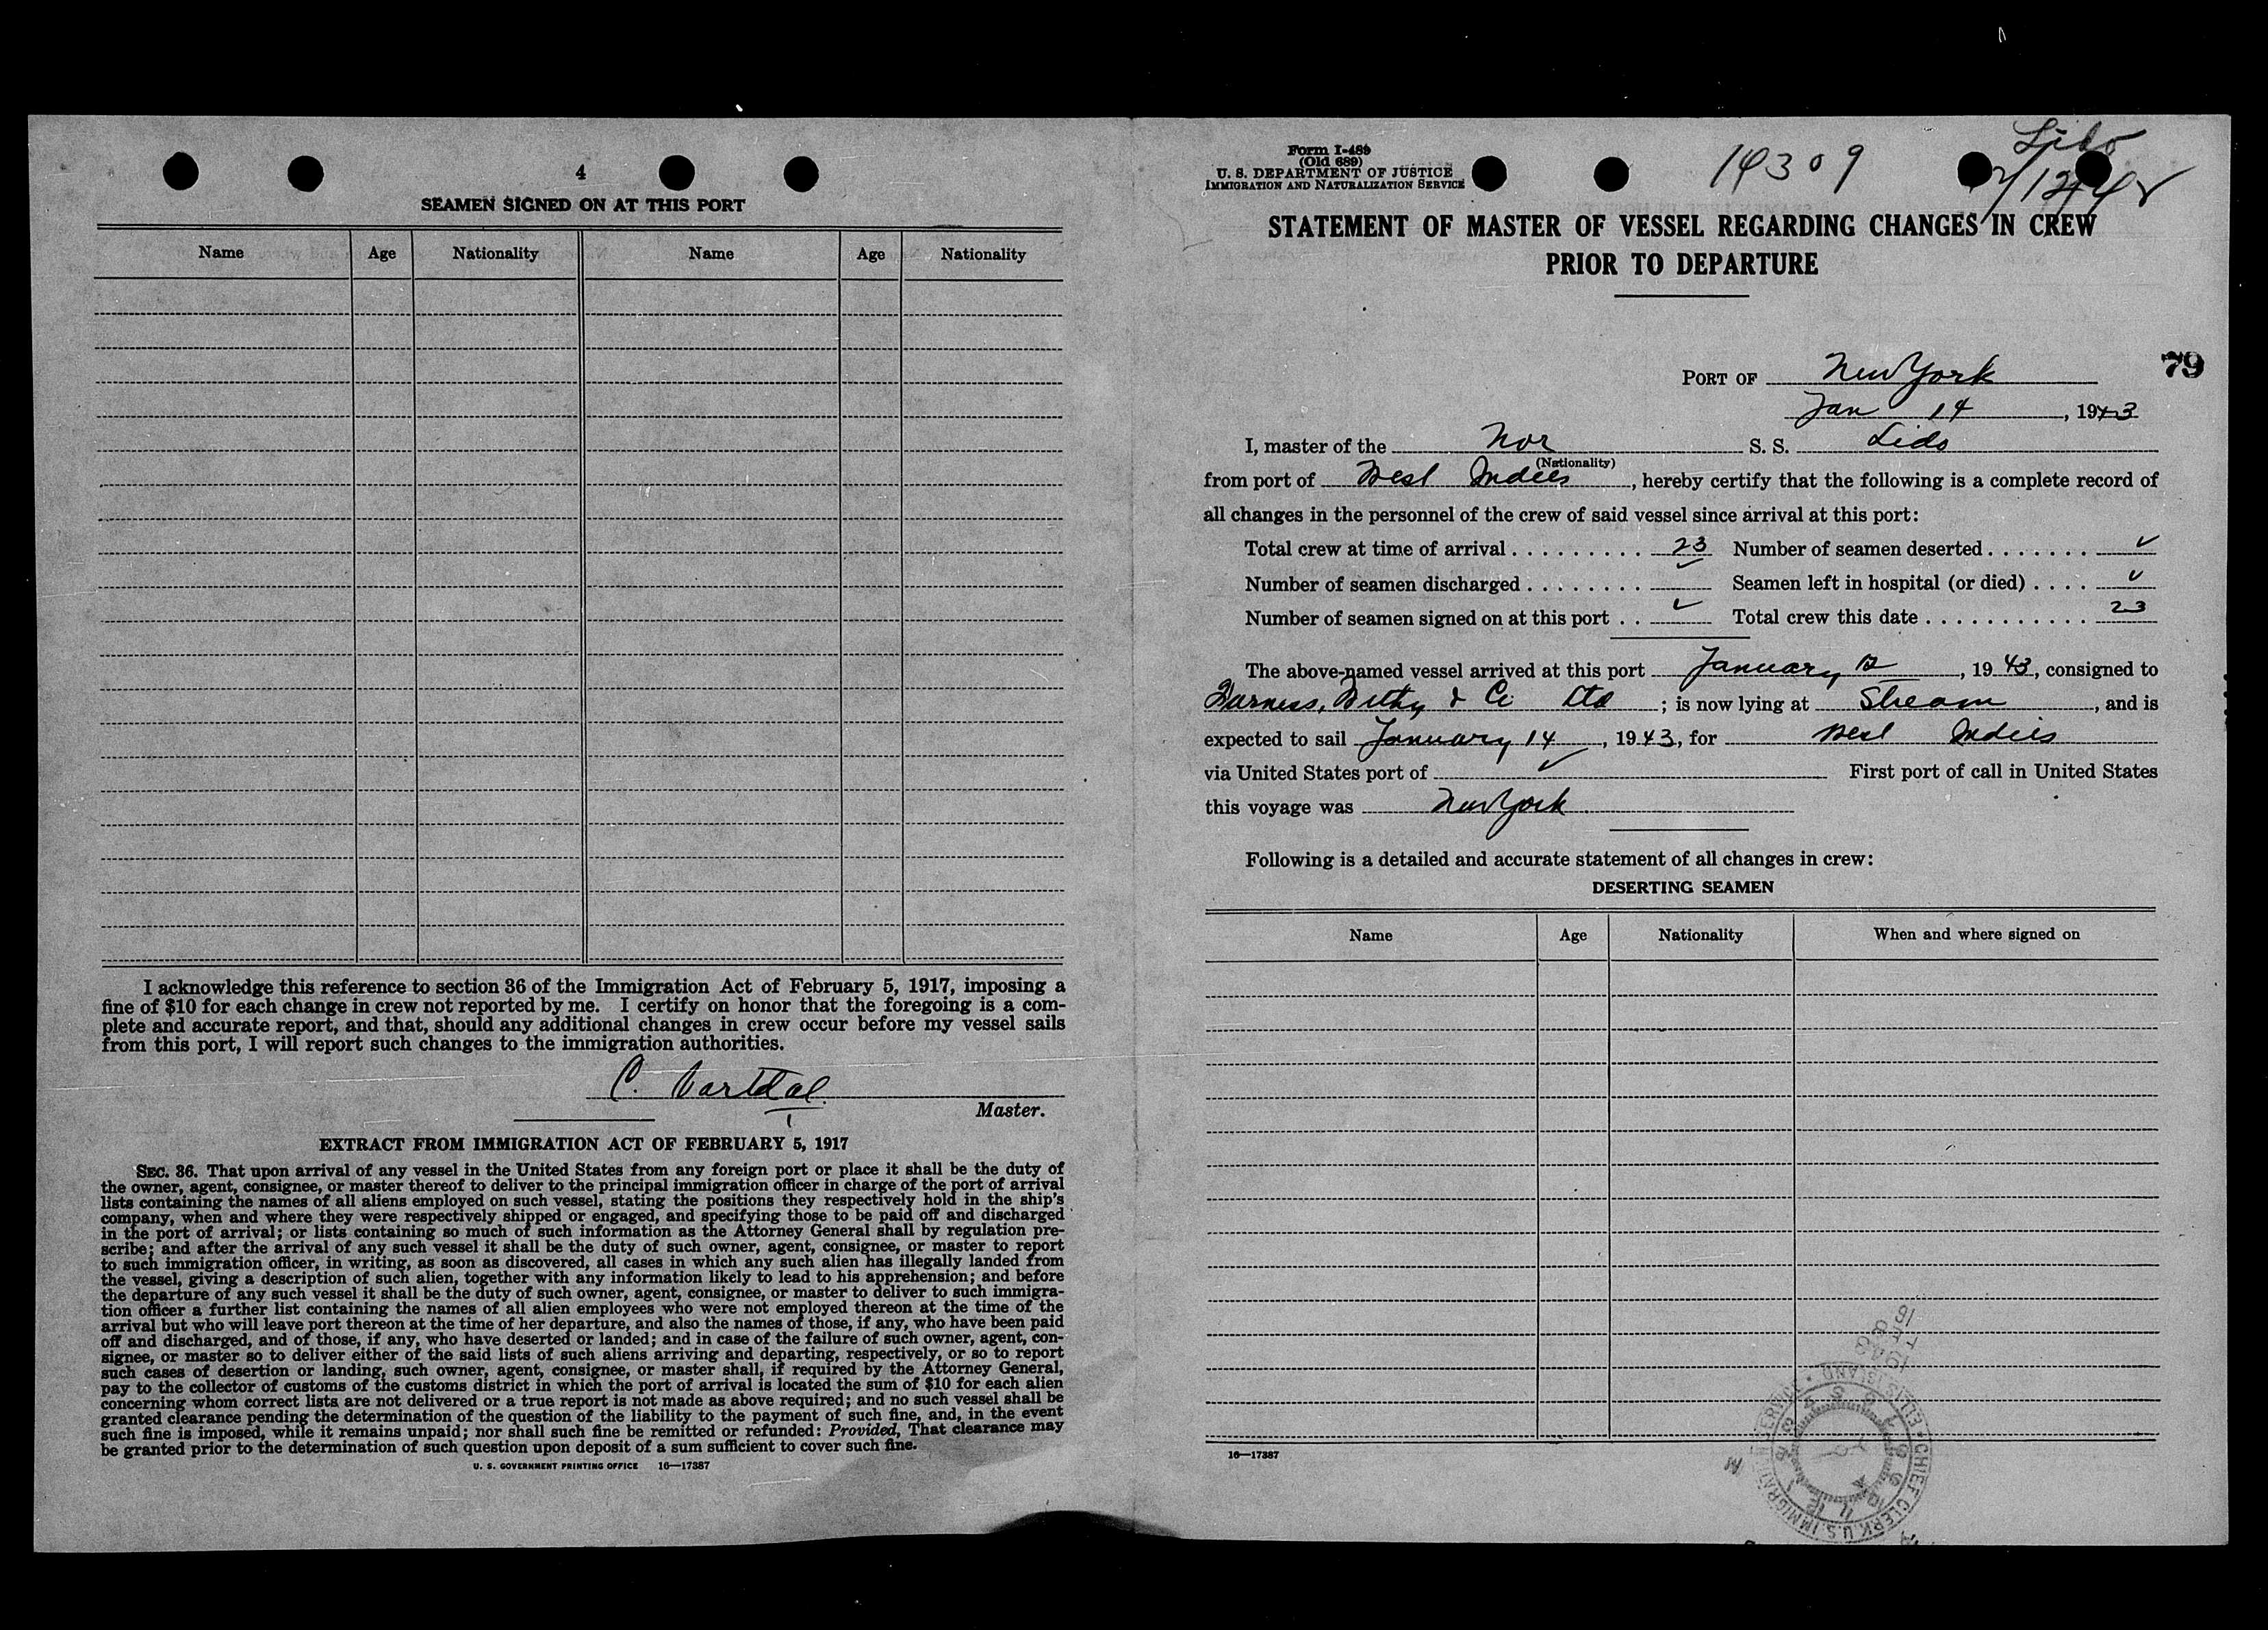 4
SEAMEN SIGNED ON AT THIS PORT
Name Age Nationality Name Age Nationality
I acknowledge this reference to section 36 of the Immigration Act of February 5, 1917, imposing a
fine of $10 for each change in crew not reported by me. I certify on honor that the foregoing is a com-
plete and accurate report, and that, should any additional changes in crew occur before my vessel sails
from this port, I will report such changes to the immigration authorities.
C. Vartdal
Master.
EXTRACT FROM IMMIGRATION ACT OF FEBRUARY 5, 1917
SEC. 36. That upon arrival of any vessel in the United States from any foreign port or place it shall be the duty of
the owner, agent, consignee, or master thereof to deliver to the principal immigration officer in charge of the port of arrival
lists containing the names of all aliens employed on such vessel, stating the positions they respectively hold in the ship's
company, when and where they were respectively shipped or engaged, and specifying those to be paid off and discharged
in the port of arrival; or lists containing so much of such information as the Attorney General shall by regulation pre-
scribe; and after the arrival of any such vessel it shall be the duty of such owner, agent, consignee, or master to report
to such immigration officer, in writing, as soon as discovered, all cases in which any such alien has illegally landed from
the vessel, giving a description of such alien, together with any information likely to lead to his apprehension; and before
the departure of any such vessel it shall be the duty of such owner, agent, consignee, or master to deliver to such immigra-
tion officer a further list containing the names of all alien employees who were not employed thereon at the time of the
arrival but who will leave port thereon at the time of her departure, and also the names of those, if any, who have been paid
off and discharged, and of those, if any, who have deserted or landed; and in case of the failure of such owner, agent, con-
signee, or master so to deliver either of the said lists of such aliens arriving and departing, respectively, or so to report
such cases of desertion or landing, such owner, agent, consignee, or master shall, if required by the Attorney General,
pay to the collector of customs of the customs district in which the port of arrival is located the sum of $10 for each alien
concerning whom correct lists are not delivered or a true report is not made as above required; and no such vessel shall be
granted clearance pending the determination of the question of the liability to the payment of such fine, and, in the event
such fine is imposed, while it remains unpaid; nor shall such fine be remitted or refunded: Provided, That clearance may
be granted prior to the determination of such question upon deposit of a sum sufficient to cover such fine.
U. S. GOVERNMENT PRINTING OFFICE 16—17387
Form I-489
(Old 689)
U. S. DEPARTMENT OF JUSTICE
IMMIGRATION AND NATURALIZATION SERVICE
14309
Lido
STATEMENT OF MASTER OF VESSEL REGARDING CHANGES IN CREW
PRIOR TO DEPARTURE
79
PORT OF New York
Jan 14, 1943
I, master of the Nor S. S. Lido
(Nationality)
from port of West Indies, hereby certify that the following is a complete record of
all changes in the personnel of the crew of said vessel since arrival at this port:
Total crew at time of arrival . . . . . . . . . 23 Number of seamen deserted . . . . . . . ✓
Number of seamen discharged . . . . . . . . ✓ Seamen left in hospital (or died) . . . . ✓
Number of seamen signed on at this port . . ✓ Total crew this date . . . . . . . . . . . 23
The above-named vessel arrived at this port January 12, 1943, consigned to
Furness, Withy & Co Ltd; is now lying at Stream, and is
expected to sail January 14, 1943, for West Indies
via United States port of ✓ First port of call in United States
this voyage was New York
Following is a detailed and accurate statement of all changes in crew:
DESERTING SEAMEN
Name Age Nationality When and where signed on
16—17387
CHIEF CLERK, U.S. IMMIGRATION SERVICE • ELLIS ISLAND